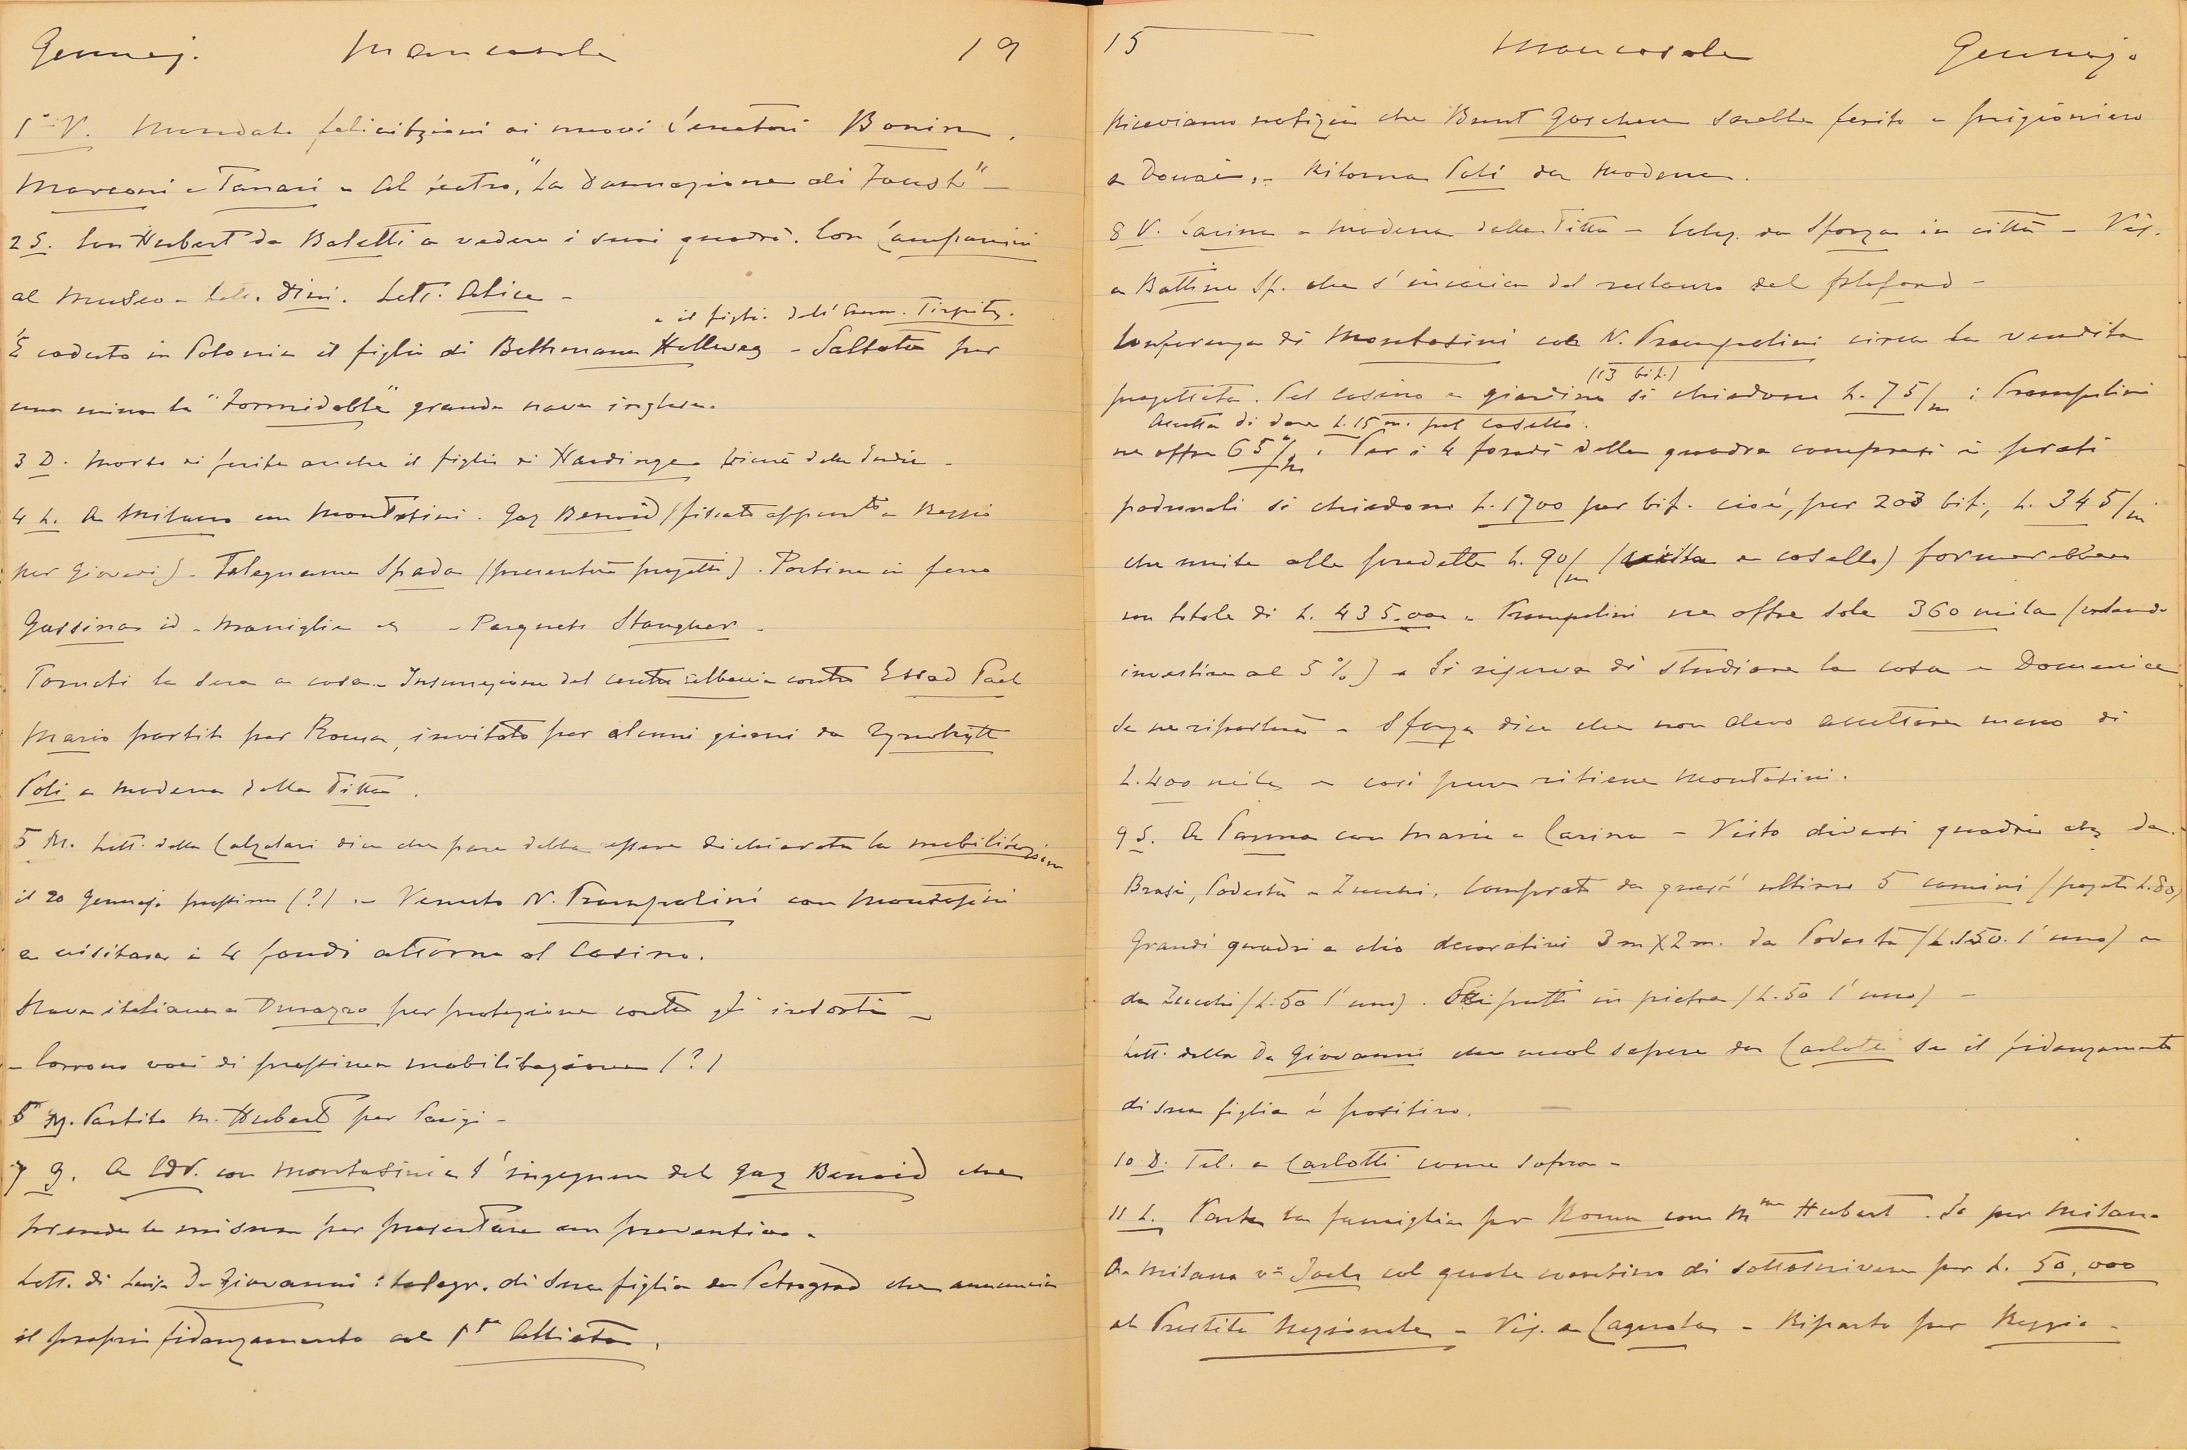 Gennaj. Mancasale 19
1° V. Mandate felicitazioni ai nuovi senatori Bonin,
Marconi e Tanari - Al teatro, "La Dannazione di Faust" -
2 S. Con Hubert da Baletti a vedere i suoi quadri. Con Campanini
al Museo - Lett. Dini. Lett. Alice -
e il figlio dell' Amm. Tirpitz.
È caduto in Polonia il figlio di Bethmann Hollweg - Saltata per
una mina la "Formidable" grande nave inglese.
3 D. Morto di ferite anche il figlio di Hardinge Viceré delle Indie -
4 L. A Milano con Montesini. Gaz Benoid (fissato appunto a Reggio
per Giovedì) - Falegname Spada (presenterà progetti). Portine in ferro
Gussina id - Maniglie - Parquets Stangher -
Tornati la sera a casa - Insurrezione del centro albania contro Essad Pacl
Mario partito per Roma, invitato per alcuni giorni da
Poli a Modena dalla Titta.
5 M. Lett. della Calzolari dice che pare debba essere dichiarata la mobilitazione
il 20 Gennajo prossimo (?) - Venuto N. Prampolini con Montesini
a visitare i 4 fondi attorno al Casino.
Nave italiana a Durazzo per protezione contro gli insorti -
- Corrono voci di prossima mobilitazione (?)
6 M. Partito M. Hubert per Parigi -
7 G. A con Montesini e l' ingegnere del gaz Benoid che
prende le misure per presentare un preventivo -
Lett. di Luisa De Giovanni : telegr. di sua figlia da Petrograd che annuncia
il proprio fidanzamento col Pr Alliata.
15 Mancasale Gennajo
Riceviamo notizia che Bunt Goschen sarebbe ferito e prigioniero
a Douai. - Ritorna Poli da Modena.
8 V. Carina a Modena dalla Titta - Coll. da Sforza in città - Vis.
a Battina Sf. che s' incarica del restauro del plafond -
Conferenza di Montesini col N. Prampolini circa la vendita
(13 bif.)
progettata. Pel casino e giardino si chiedono L. 75/m : Prampolini
Accetta di dare L. 15 m. pel casello.
ne offre 65/m. Per i 4 fondi della quadra compresi i prati
padronali si chiedono L. 1700 per bif. cioè, per 203 bif., L. 345/m
che unite alle predette L. 90/m ( e casello) formerebbero
un totale di L. 435.000 - Prampolini ne offre sole 360 mila (volendo
investire al 5 %) - Si riserva di studiare la cosa e Domenica
se ne riparlerà - Sforza dice che non devo accettare meno di
L. 400 mila - così pure ritiene Montesini.
9 S. A Parma con Maria e Carina - Visto diversi quadri da
Brasi, Podestà e Zucchi. Comprati da quest' ultimo 5 camini (pagati L. 80)
Grandi quadri a olio decorativi 3 m X 2 m. da Podestà (L. 150. l' uno) e
da Zucchi (L. 50 l' uno). putti in pietra (L. 50 l' uno) -
Lett. della De Giovanni che vuol sapere da Carlotti se il fidanzamento
di sua figlia è positivo.
10 D. Tel. a Carlotti come sopra -
11 L. Parte la famiglia per Roma con Mme Hubert. Io per Milano
A Milano v° Joels col quale combino di sottoscrivere per L. 50,000
al Prestito Nazionale - Vis. a Cagnola - Riparto per Reggio -